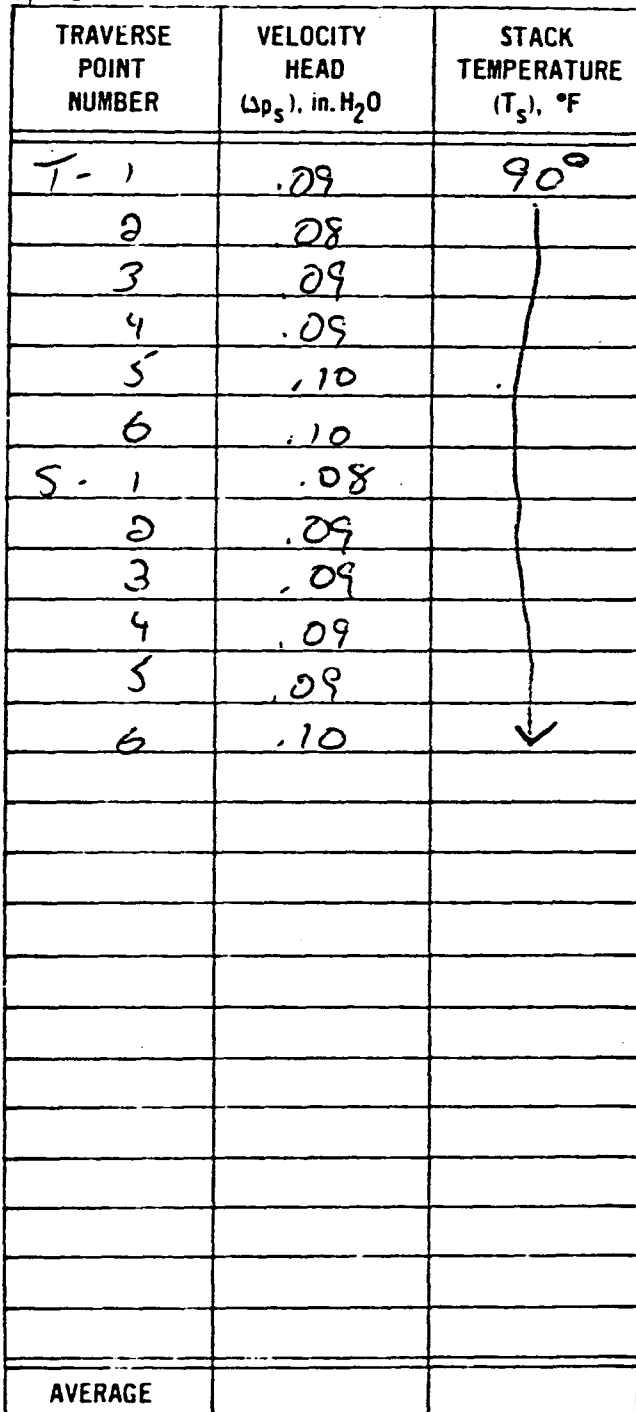 TRAVERSE POINT NUMBER VELOCITY HEAD (Δps), in. H2O STACK TEMPERATURE (Ts), °F
T - 1 .09 90°
2 .08
3 .09
4 .09
5 .10
6 .10
S - 1 .08
2 .09
3 .09
4 .09
5 .09
6 .10
AVERAGE